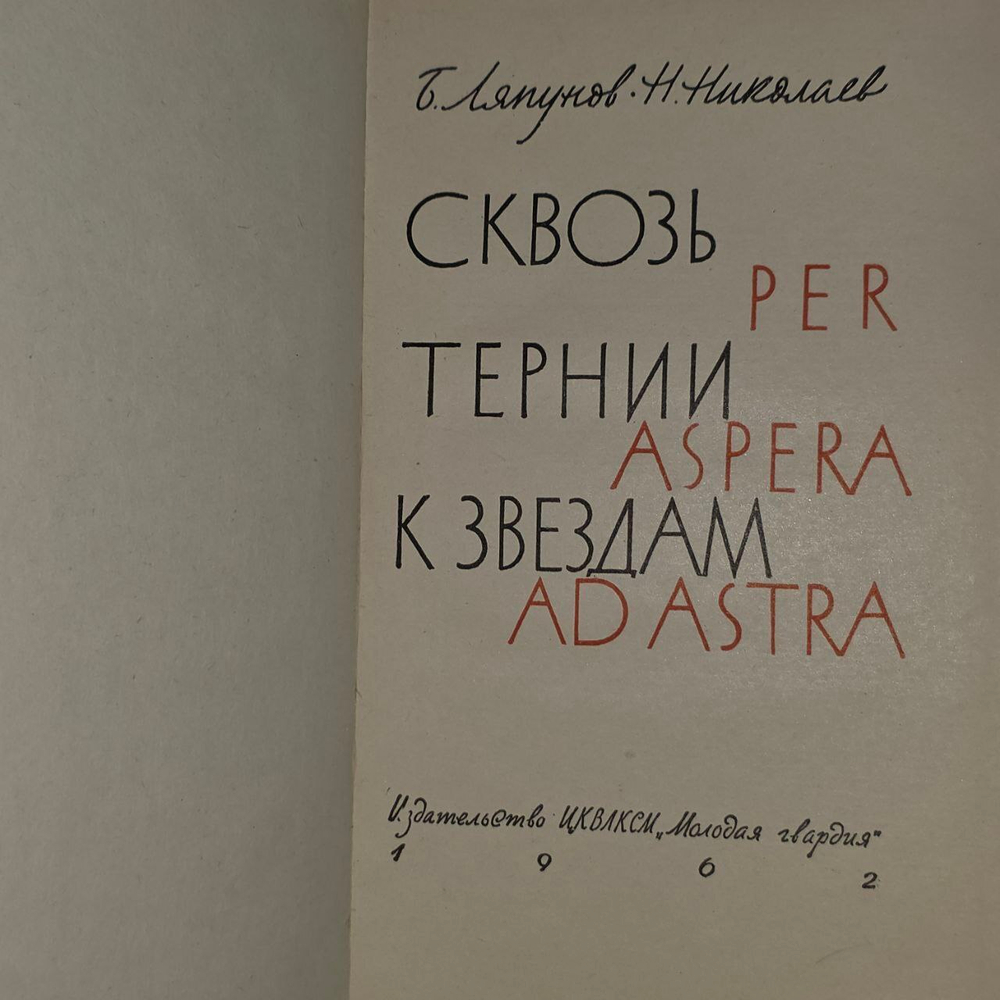 Б. Ляпунов · Н. Николаев
СКВОЗЬ
PER
ТЕРНИИ
ASPERA
К ЗВЕЗДАМ
AD ASTRA
Издательство ЦК ВЛКСМ „Молодая гвардия"
1962